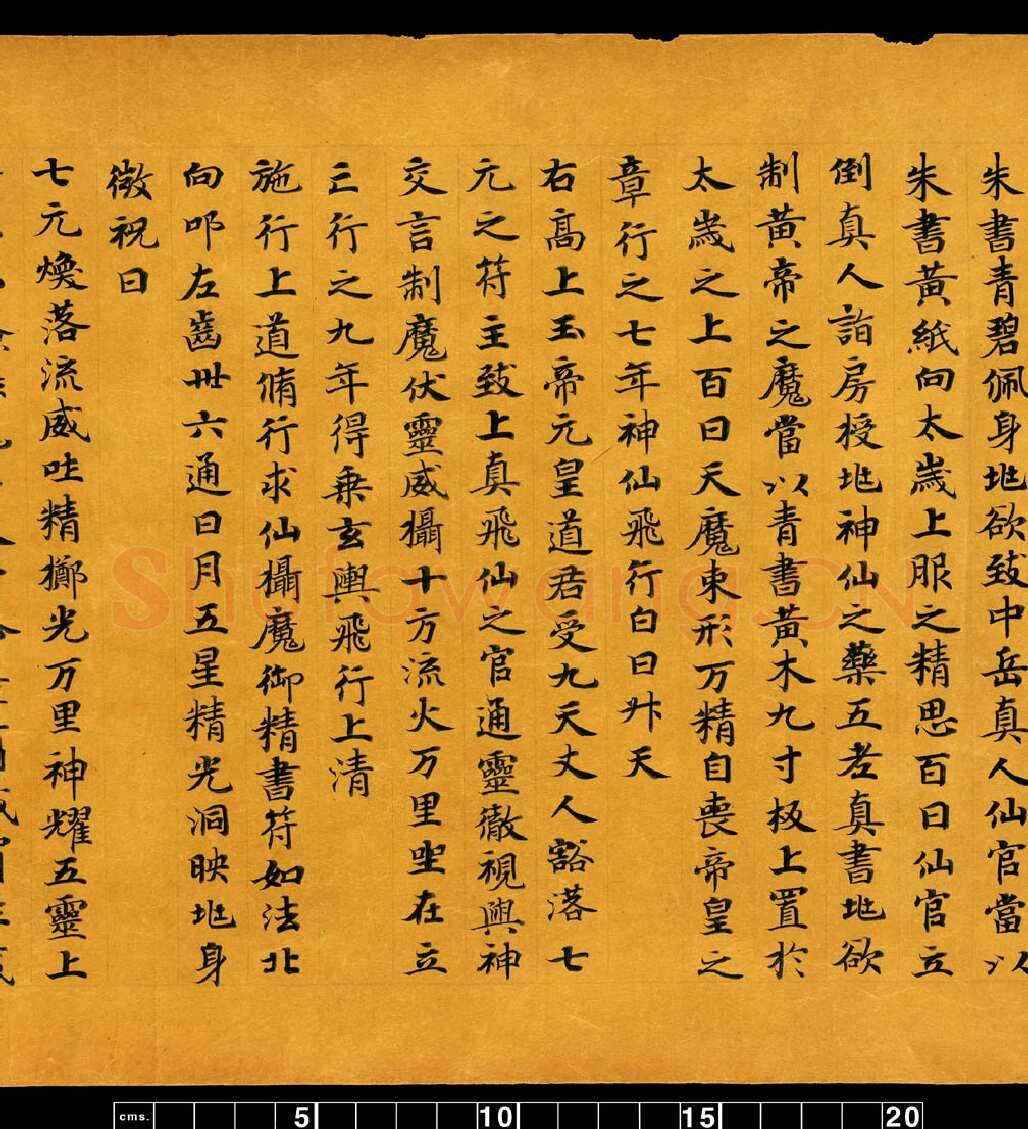 朱書青碧佩身也欲致中岳真人仙官當以
朱書黃紙向太歲上服之精思百日仙官立
倒真人詣房授也神仙之藥五老真書也欲
制黃帝之魔當以青書黃木九寸板上置於
太歲之上百日天魔束形万精自喪帝皇之
章行之七年神仙飛行白日升天
右高上玉帝元皇道君受九天丈人豁落七
元之符主致上真飛仙之官通靈徹視與神
交言制魔伏靈威攝十方流火万里坐在立
三行之九年得乗玄輿飛行上清
施行上道脩行求仙攝魔御精書符如法北
向叩左齒卅六通日月五星精光洞映也身
微祝曰
七元煥落流威吐精擲光万里神耀五靈上
Shufawang.CN
cms. 5 10 15 20